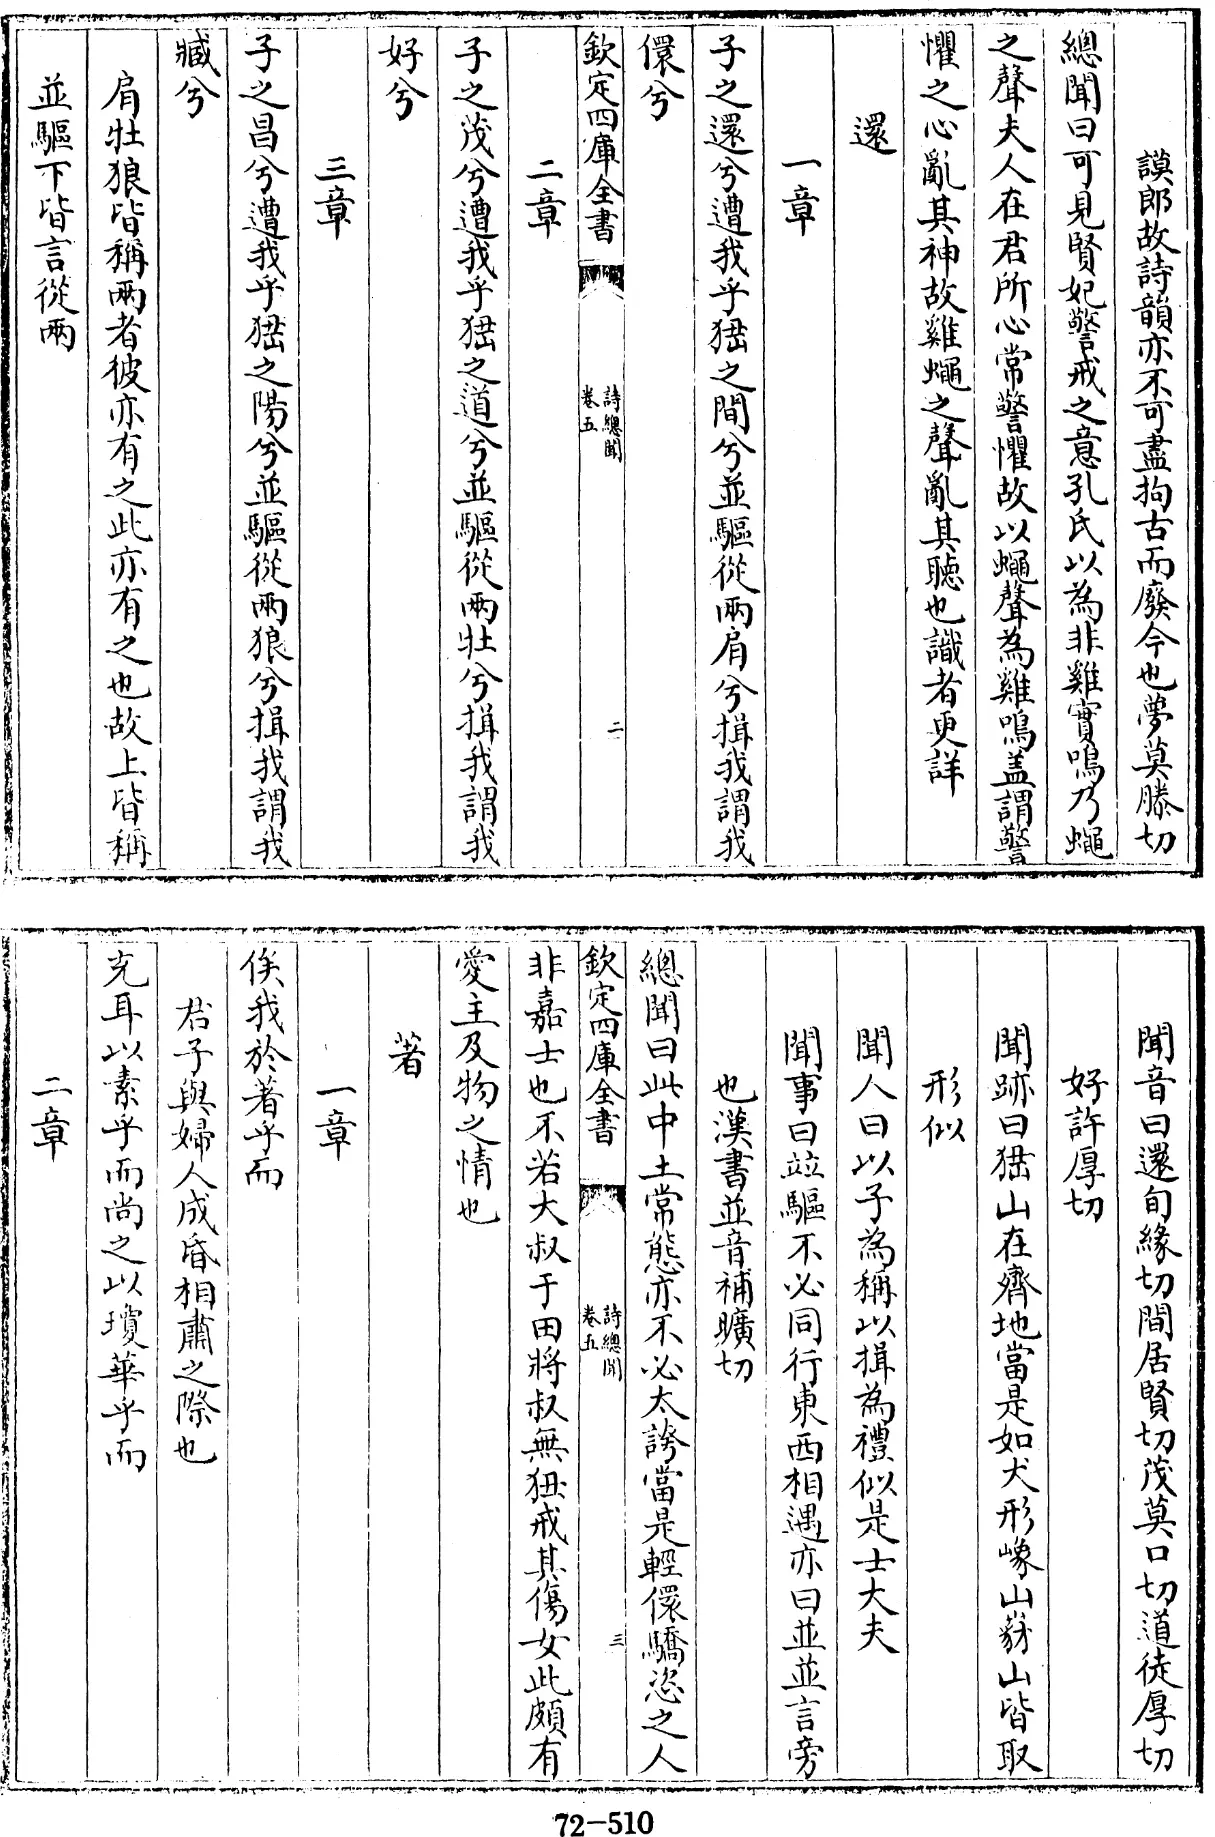 謨郎故詩韻亦不可盡拘古而廢今也夢莫滕切
總聞曰可見賢妃警戒之意孔氏以為非雞實鳴乃蠅
之聲夫人在君所心常警懼故以蠅聲為雞鳴盖謂警
懼之心亂其神故雞蠅之聲亂其聽也識者更詳
還
一章
子之還兮遭我乎峱之間兮並驅從兩肩兮揖我謂我
儇兮
欽定四庫全書
詩總聞
卷五
二
二章
子之茂兮遭我乎峱之道兮並驅從兩牡兮揖我謂我
好兮
三章
子之昌兮遭我乎峱之陽兮並驅從兩狼兮揖我謂我
臧兮
肩牡狼皆稱兩者彼亦有之此亦有之也故上皆稱
並驅下皆言從兩
聞音曰還旬緣切間居賢切茂莫口切道徒厚切
好許厚切
聞跡曰峱山在齊地當是如犬形㟓山豺山皆取
形似
聞人曰以子為稱以揖為禮似是士大夫
聞事曰竝驅不必同行東西相遇亦曰並並言旁
也漢書並音補曠切
總聞曰此中土常態亦不必太誇當是輕儇驕恣之人
欽定四庫全書
詩總聞
卷五
三
非嘉士也不若大叔于田將叔無狃戒其傷女此頗有
愛主及物之情也
著
一章
俟我於著乎而
君子與婦人成昏相肅之際也
充耳以素乎而尚之以瓊華乎而
二章
72-510